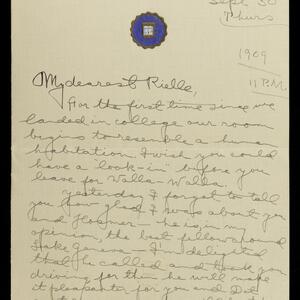 Sept 30
Thurs
1909
11 P.M.
My dearest Rielle,
For the first time since we
landed in college our room
begins to resemble a human
habitation. I wish you could
have a "look-in" before you
leave for Walla-Walla.
Yesterday I forgot to tell
you how glad I was about you
and Hosmer - he is, in my
opinion, the best fellow around
Lake Geneva - I'm delighted
that he called and took you
driving for then he will make
it pleasanter for you and